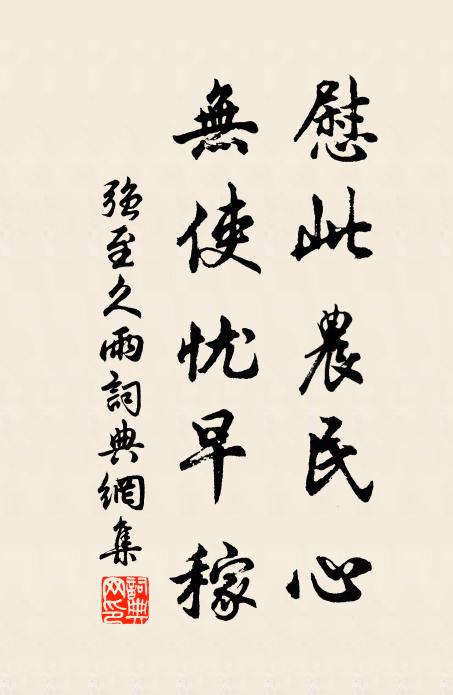 慰此農民心
無使忧早稼
强至久雨詞典網集
詞典網印